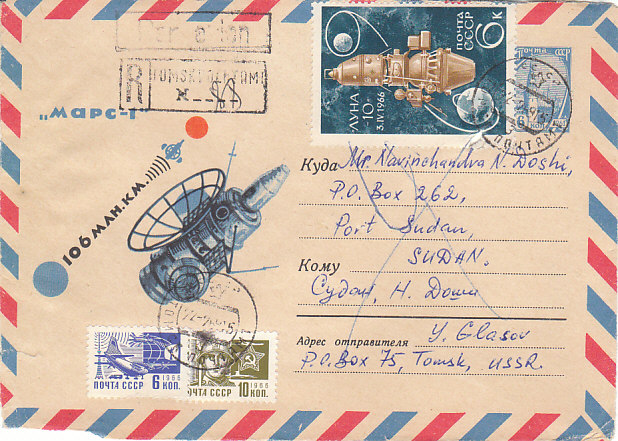 ПОЧТА
СССР
6К
ЛУНА
-10-
3.IV.1966
ПОЧТА СССР
R
TOMSK
„МАРС-1"
106 МЛН. КМ.
Куда Mr. Navinchandra N. Doshi,
P.O. Box 262,
Port Sudan,
SUDAN.
Кому
Судан, Н. Доши
Y. Glasov
Адрес отправителя
P.O. Box 75, Tomsk, USSR.
ПОЧТА СССР
6 КОП.
1966
ПОЧТА СССР
10 КОП.
1966